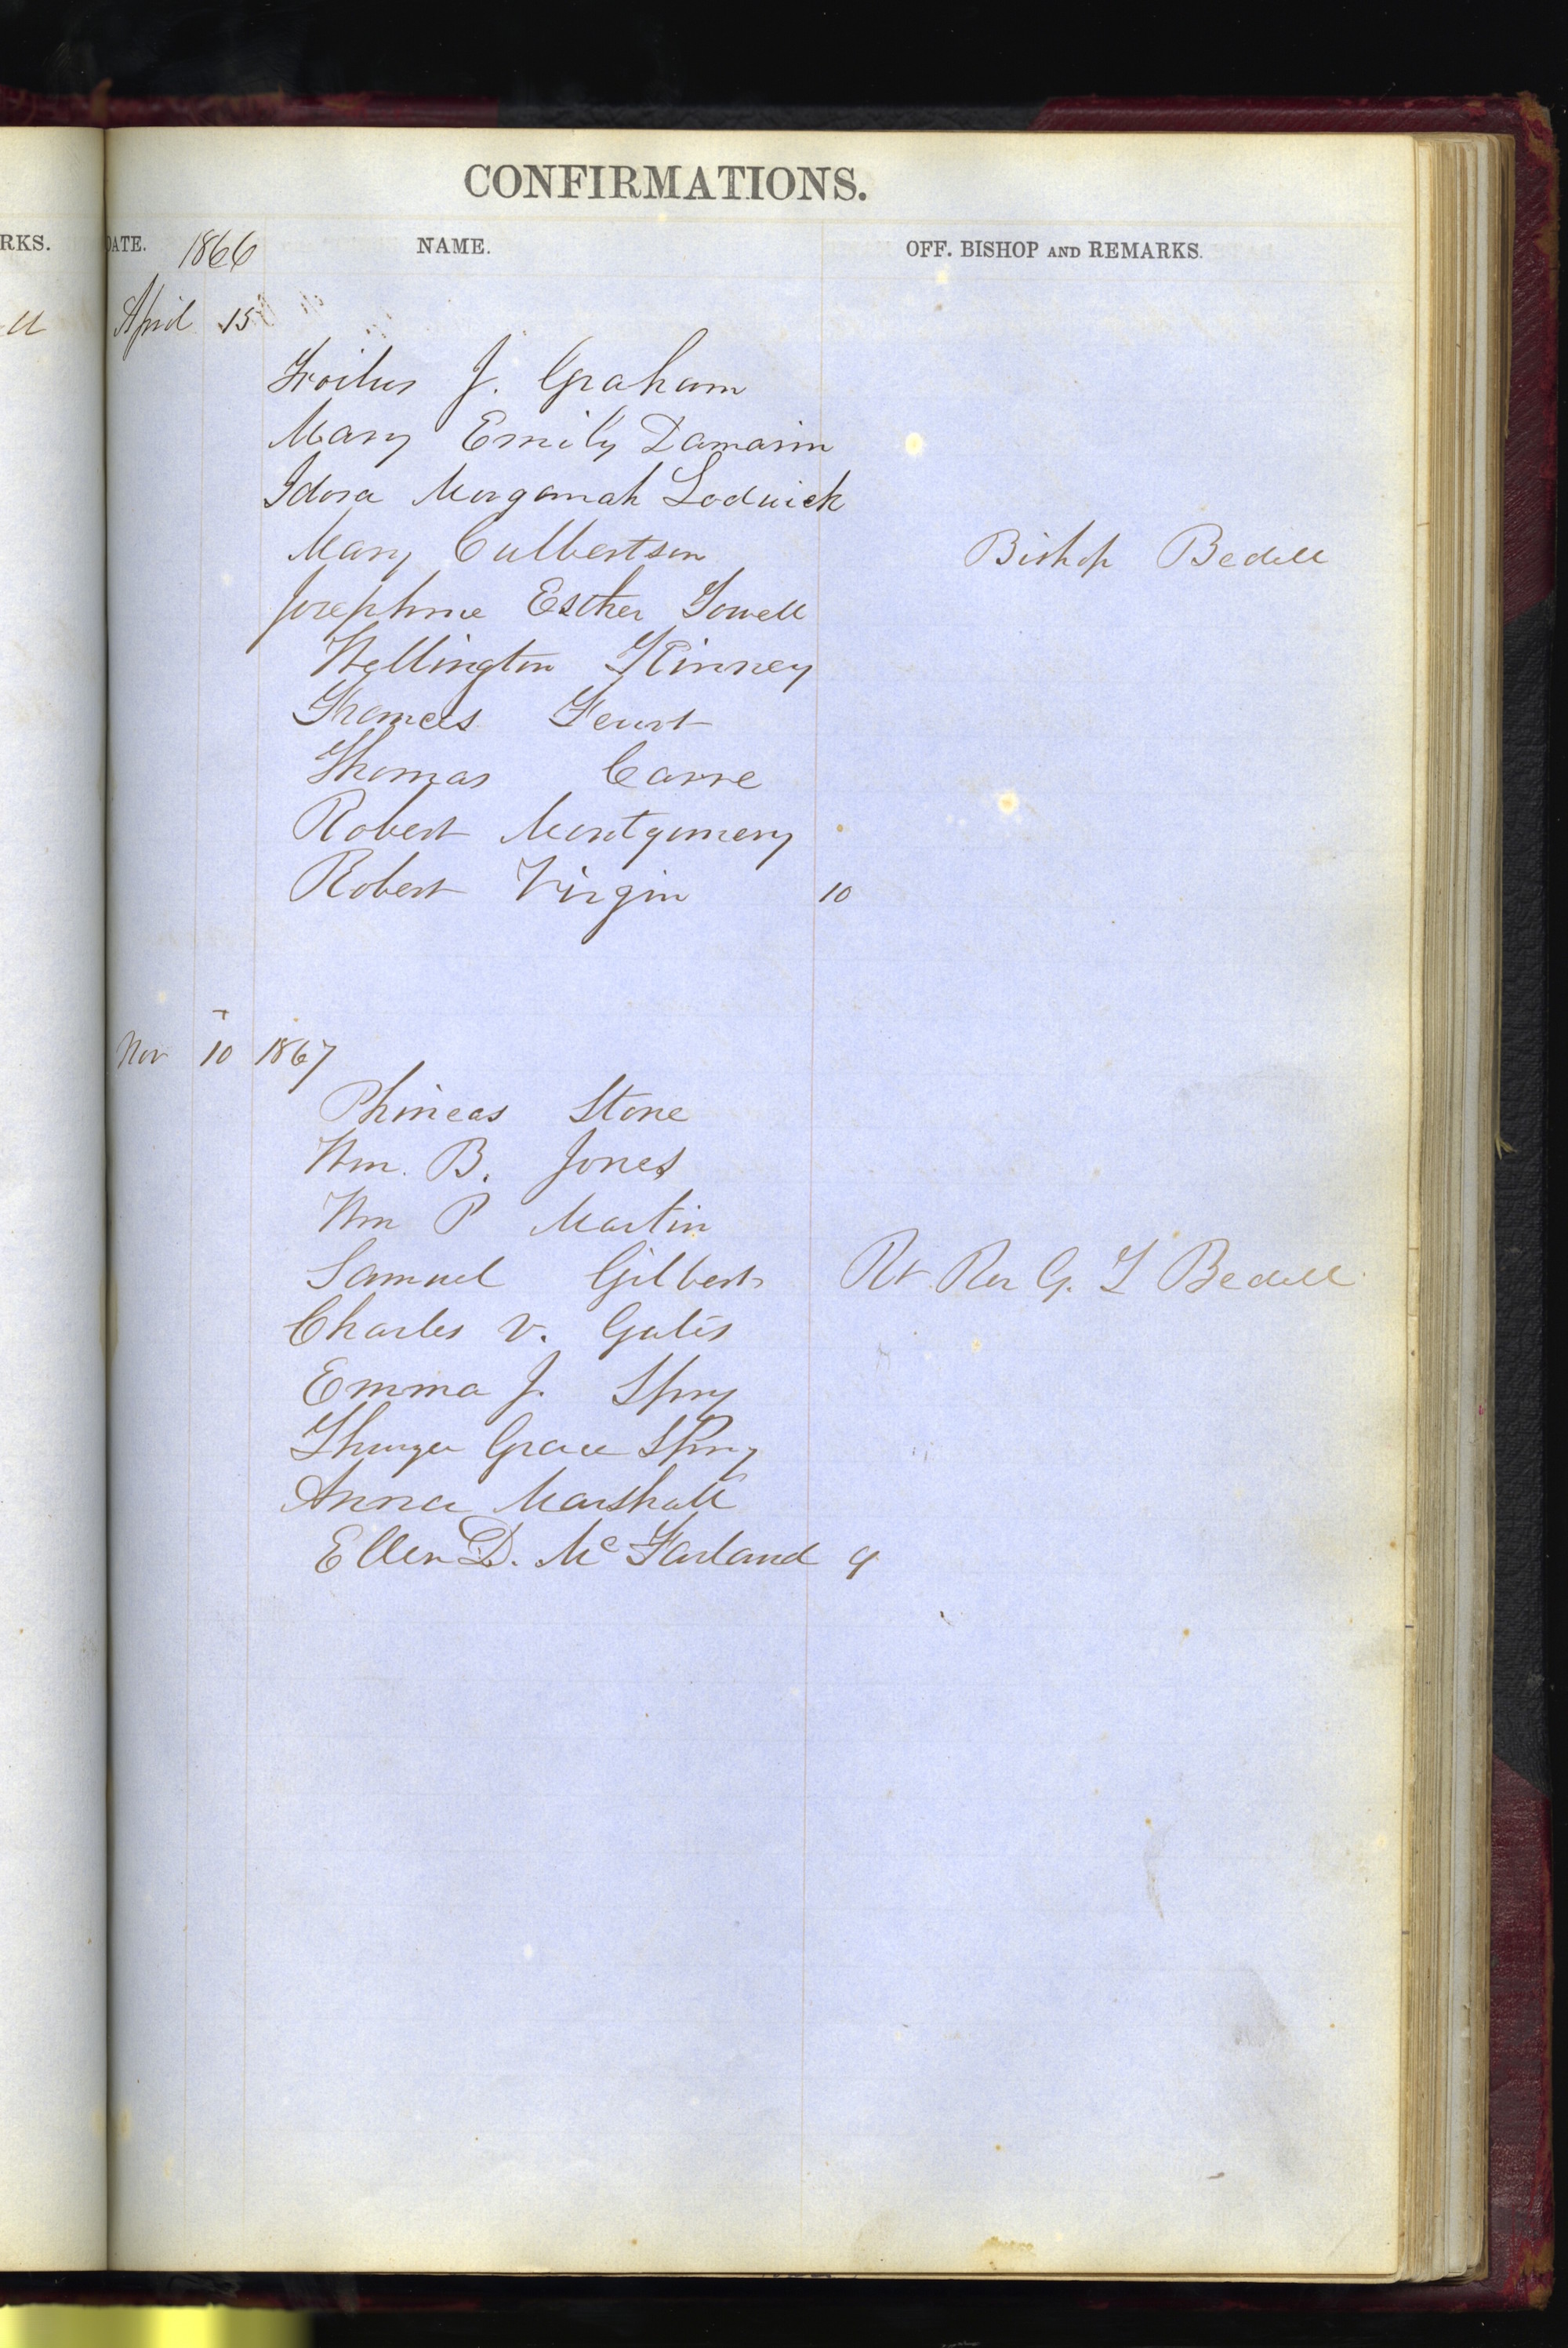 CONFIRMATIONS.
RKS. DATE. 1866 NAME. OFF. BISHOP AND REMARKS.
April 15
Troilus J. Graham
Mary Emily Damarin
Idora Morganah Lodwick
Mary Culbertson Bishop Bedell
Josephine Esther Towell
Wellington Kinney
Frances Feurt
Thomas Carre
Robert Montgomery
Robert Virgin 10
Nov 10 1867
Phineas Stone
Wm. B. Jones
Wm P Martin
Samuel Gilbert Rt Rev G. T Bedell
Charles V. Gates
Emma J. Spry
Grace Spry
Anna Marshall
Ellen D. McFarland 9